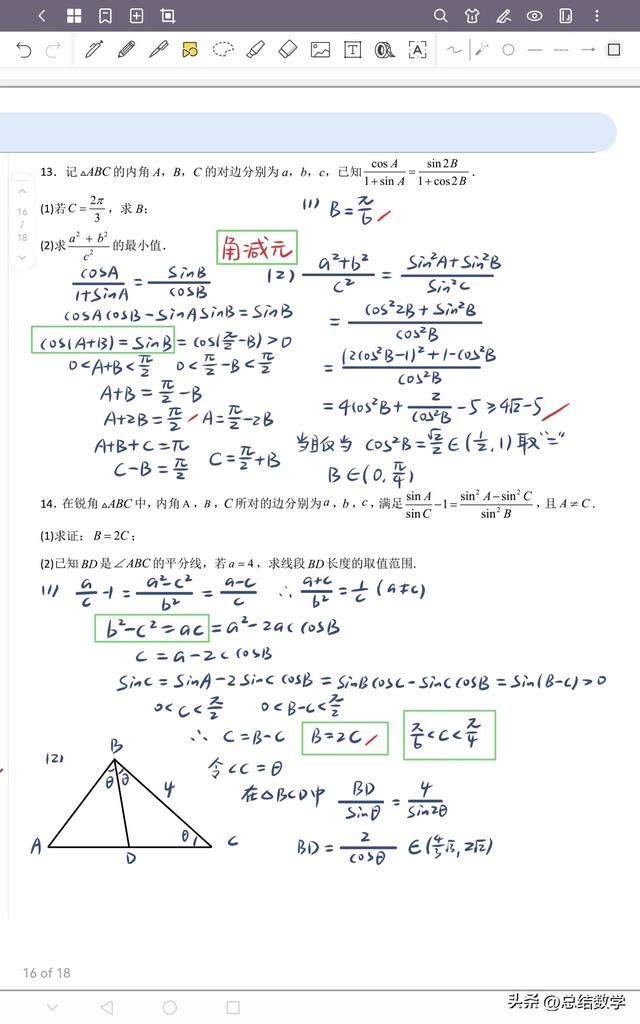 13. 记△ABC的内角A, B, C的对边分别为a, b, c, 已知 cosA/(1+sinA) = sin2B/(1+cos2B).
(1)若C=2π/3, 求B;
(1) B=π/6
(2)求 (a²+b²)/c² 的最小值.
角减元
cosA/(1+sinA) = sinB/cosB
cosAcosB-sinAsinB=sinB
cos(A+B)=sinB=cos(π/2-B)>0
0<A+B<π/2 0<π/2-B<π/2
A+B=π/2-B
A+2B=π/2 A=π/2-2B
A+B+C=π
C-B=π/2 C=π/2+B
(2) (a²+b²)/c² = (sin²A+sin²B)/sin²C
= (cos²2B+sin²B)/cos²B
= ((2cos²B-1)²+1-cos²B)/cos²B
=4cos²B+2/cos²B-5≥4√2-5
当且仅当 cos²B=√2/2∈(1/2,1)取"="
B∈(0,π/4)
14. 在锐角△ABC中, 内角A, B, C所对的边分别为a, b, c, 满足 sinA/sinC-1=(sin²A-sin²C)/sin²B, 且A≠C.
(1)求证: B=2C;
(2)已知BD是∠ABC的平分线, 若a=4, 求线段BD长度的取值范围.
(1) a/c-1=(a²-c²)/b²=(a-c)/c ∴(a+c)/b²=1/c (a≠c)
b²-c²=ac=a²-2accosB
c=a-2ccosB
sinC=sinA-2sinCcosB=sinBcosC-sinCcosB=sin(B-C)>0
0<C<π/2 0<B-C<π/2
∴ C=B-C B=2C π/6<C<π/4
(2)
B
θ θ
4
A
D
θ
C
令∠C=θ
在△BCD中 BD/sinθ=4/sin2θ
BD=2/cosθ ∈(4/3√3,2√2)
16
/
18
16 of 18
头条 @总结数学